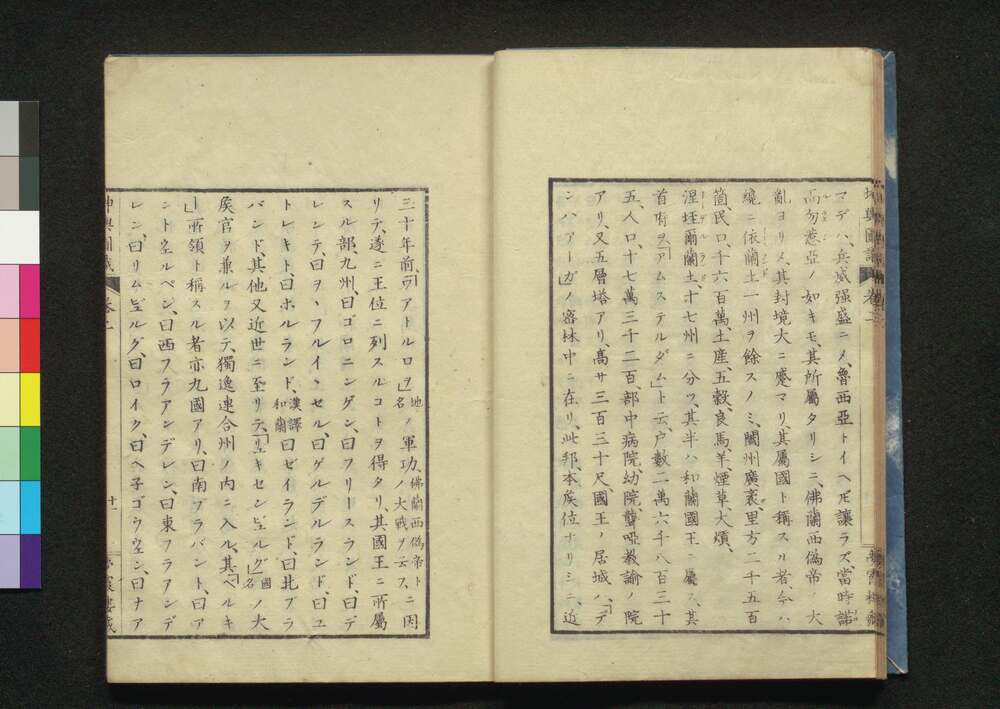 マデハ、兵威强盛ニメ、魯西亞トイヘ𪜈讓ラズ、當時諾
而勿惹亞ノ如キモ、其所屬タリシニ、佛蘭西偽帝ノ大
亂ヨリメ、其封境大ニ蹙マリ、其屬國ト稱スル者、今ハ
纔ニ依蘭土一州ヲ餘スノミ、闔州廣袤、里方二千五百
箇、民口、千六百萬、土産、五穀、良馬、羊、煙草、大煩、
涅垤爾蘭土、十七州ニ分ツ、其半ハ和蘭國王ニ屬ス、其
首府ヲ「アムステルダム」ト云、户數二萬六千八百三十
五、人口、十七萬三千二百、部中病院、幼院、聾啞教諭ノ院
アリ、又五層塔アリ、髙サ三百三十尺國王ノ居城ハ、「デ
ンハアーガ」ノ密林中ニ在リ、此邦、本矦位ナリシニ、近
坤輿圖識 卷二
三十年前、「ワアトルロヲ」地名ノ軍功、佛蘭西偽帝トノ大戰ヲ云フ、ニ因
リテ、遂ニ王位ニ列スルコトヲ得タリ、其國王ニ所屬
スル部、九州、曰ゴロニンゲン、曰フリースランド、曰デ
レンテ、曰ヲヽフルイヽセル、曰ゲルデルランド、曰ユ
トレキト、曰ホルランド、漢譯和蘭曰ゼイランド、曰北ブラ
バンド、其他又近世ニ至リテ、「リュキセンビュルグ」國名ノ大
矦官ヲ兼ルヲ以テ、獨逸連合州ノ内ニ入ル、其「ベルキ
ー」所領ト稱スル者亦九國アリ、曰南ブラバント、曰ア
ントウェルペン、曰西フラアンデレン、曰東フラアンデ
レン、曰リムビュルグ、曰ロイク、曰ヘ子ゴウウェン、曰ナア
坤輿圖識 卷二 十二